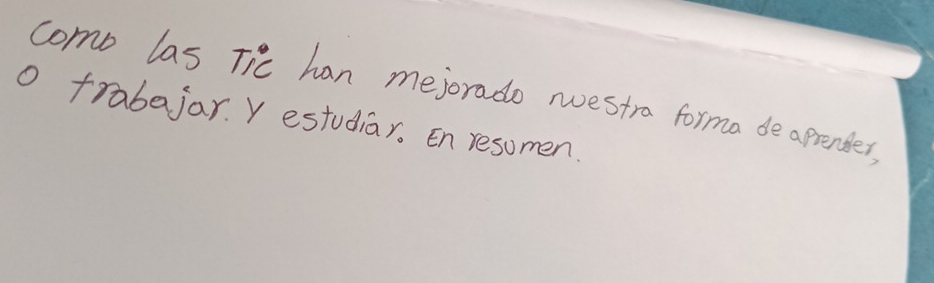 como las Tic han mejorado nuestra forma de aprender,
o trabajar. Y estudiar. En resumen.